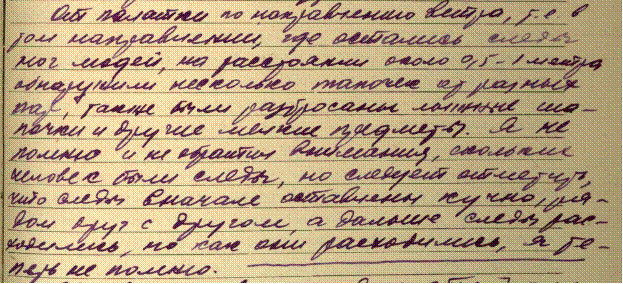 От палатки по направлению ветра, т.е. в
том направлении, где остались следы
ног людей, на расстоянии около 0,5-1 метра
обнаружили несколько тапочек от разных
пар, также были разбросаны лыжные ша-
почки и другие мелкие предметы. Я не
помню и не обратил внимания, скольких
человек были следы, но следует отметить,
что следы вначале оставлены кучно, ря-
дом друг с другом, а дальше следы рас-
ходились, но как они расходились, я те-
перь не помню.